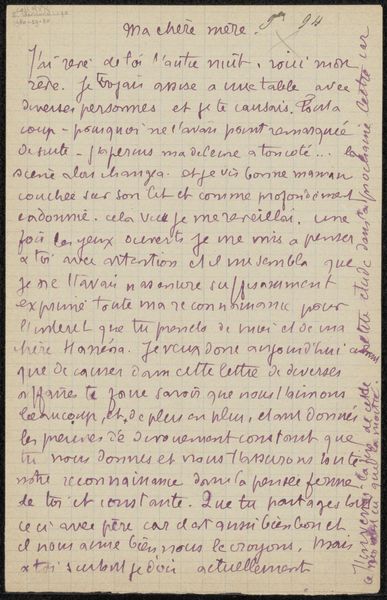 Ma chère mère.
94
J'ai rêvé de toi l'autre nuit, voici mon
rêve. Je t' assise a une table avec
diverses personnes et je te causais. Tout a
coup - pourquoi ne l'avais point remarquée
de suite - j'aperçus a ton coté... la
scène alors changea. et je vis bonne maman
couchée sur son lit et comme profondément
endormie. cela vu je me reveillai, une
fois les yeux ouverts je me mis a penser
a toi avec attention et il me sembla que
je ne t'avais pas encore suffisamment
exprimé toute ma reconnaissance pour
l'interet que tu prends de moi et de ma
chère Hanéna. Je veux donc aujourd'hui avant
que de causer dans cette lettre de diverses
affaires te faire savoir que nous t'aimons
beaucoup et de plus en plus, etant donné
les preuves de devouement constant que
tu nous donnes et nous t'assurons toute
notre reconnaissance dans la pensée ferme
de toi et constante. Que tu partages
ceci avec père car il est aussi bien bon et
il nous aime bien nous le croyons, Mais
a toi surtout je dois actuellement
petite etude dans la prochaine lettre car